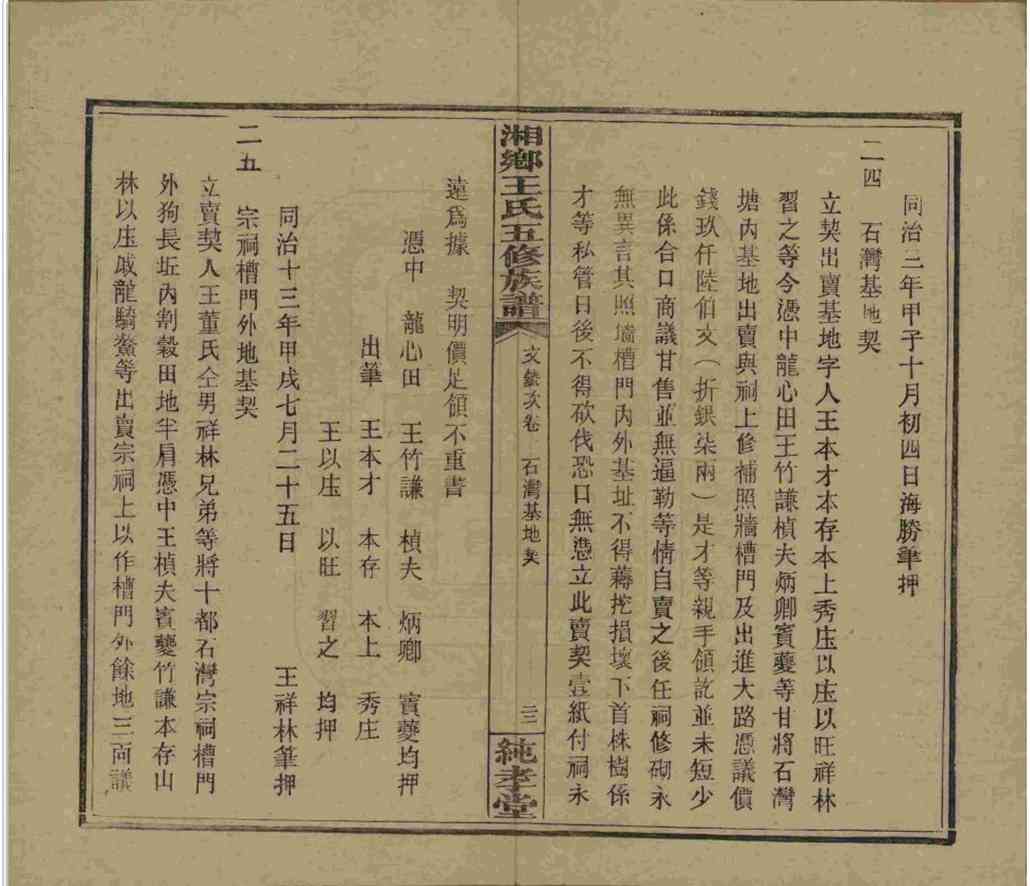 同治三年甲子十月初四日海勝筆押
二四　石灣基地契
立契出賣基地字人王本才本存本上秀庄以庒以旺祥林
習之等今憑中龍心田王竹謙楨夫炳卿賓夔等甘將石灣
塘內基地出賣與祠上修補照牆槽門及出進大路憑議價
錢玖仟陸伯文（折銀柒兩）是才等親手領訖並未短少
此係合口商議甘售並無逼勒等情自賣之後任祠修砌永
無異言其照墻槽門內外基址不得蓐挖損壞下首株樹係
才等私管日後不得砍伐恐口無憑立此賣契壹紙付祠永
湘鄉王氏五修族譜　文徵次卷　石灣基地契　二三　純孝堂
遠爲據　契明價足領不重書
憑中　龍心田　王竹謙　楨夫　炳卿　賓夔均押
出筆　王本才　本存　本上　秀庄
王以庒　以旺　習之　均押
同治十三年甲戌七月二十五日　王祥林筆押
二五　宗祠槽門外地基契
立賣契人王董氏仝男祥林兄弟等將十都石灣宗祠槽門
外狗長坵內割穀田地半肩憑中王楨夫賓夔竹謙本存山
林以庒戚龍騎鰲等出賣宗祠上以作槽門外餘地三面議